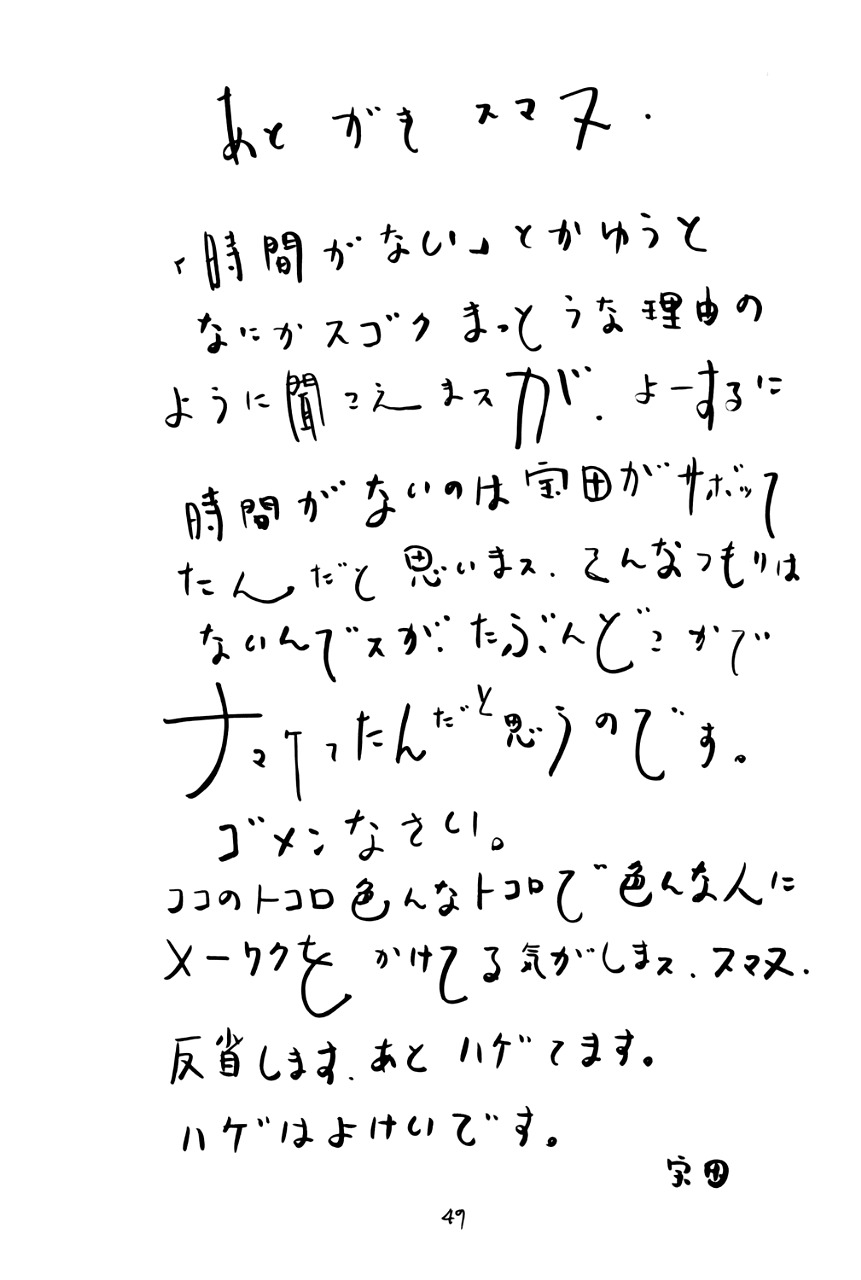 あとがきスマヌ.
「時間がない」とかゆうと
なにかスゴクまっとうな理由の
ように聞こえまスが.よーするに
時間がないのは宝田がサボッて
たんだと思いまス.そんなつもりは
ないんでスが.たぶんどこかで
ナマケてたんだと思うのです。
ゴメンなさい。
ココのトコロ色んなトコロで色んな人に
メーワクをかけてる気がしまス.スマヌ.
反省します.あとハゲてます。
ハゲはよけいです。
宝田
49